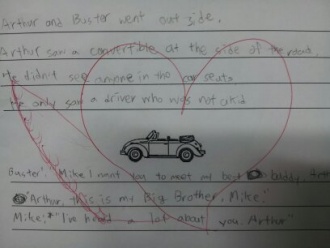 Arthur and Buster went out side.
Arthur saw a convertible at the side of the road.
He didn't see anyone in the car seats
He only saw a driver who was not a kid
Buster: "Mike I want you to meet my best buddy, Art
"Arthur, this is my Big Brother, Mike."
Mike: "I've heard a lot about you Arthur"